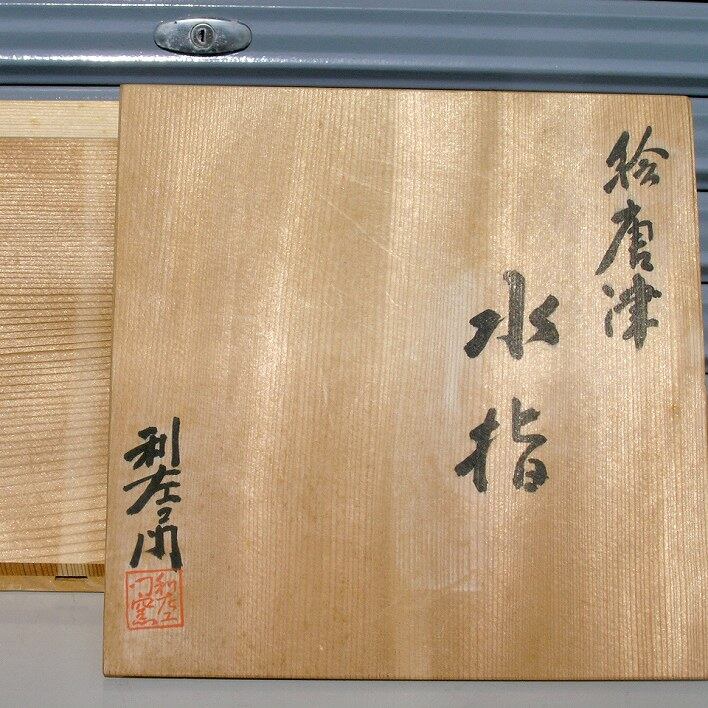 絵唐津
水指
利左ヱ門
利左
門窯